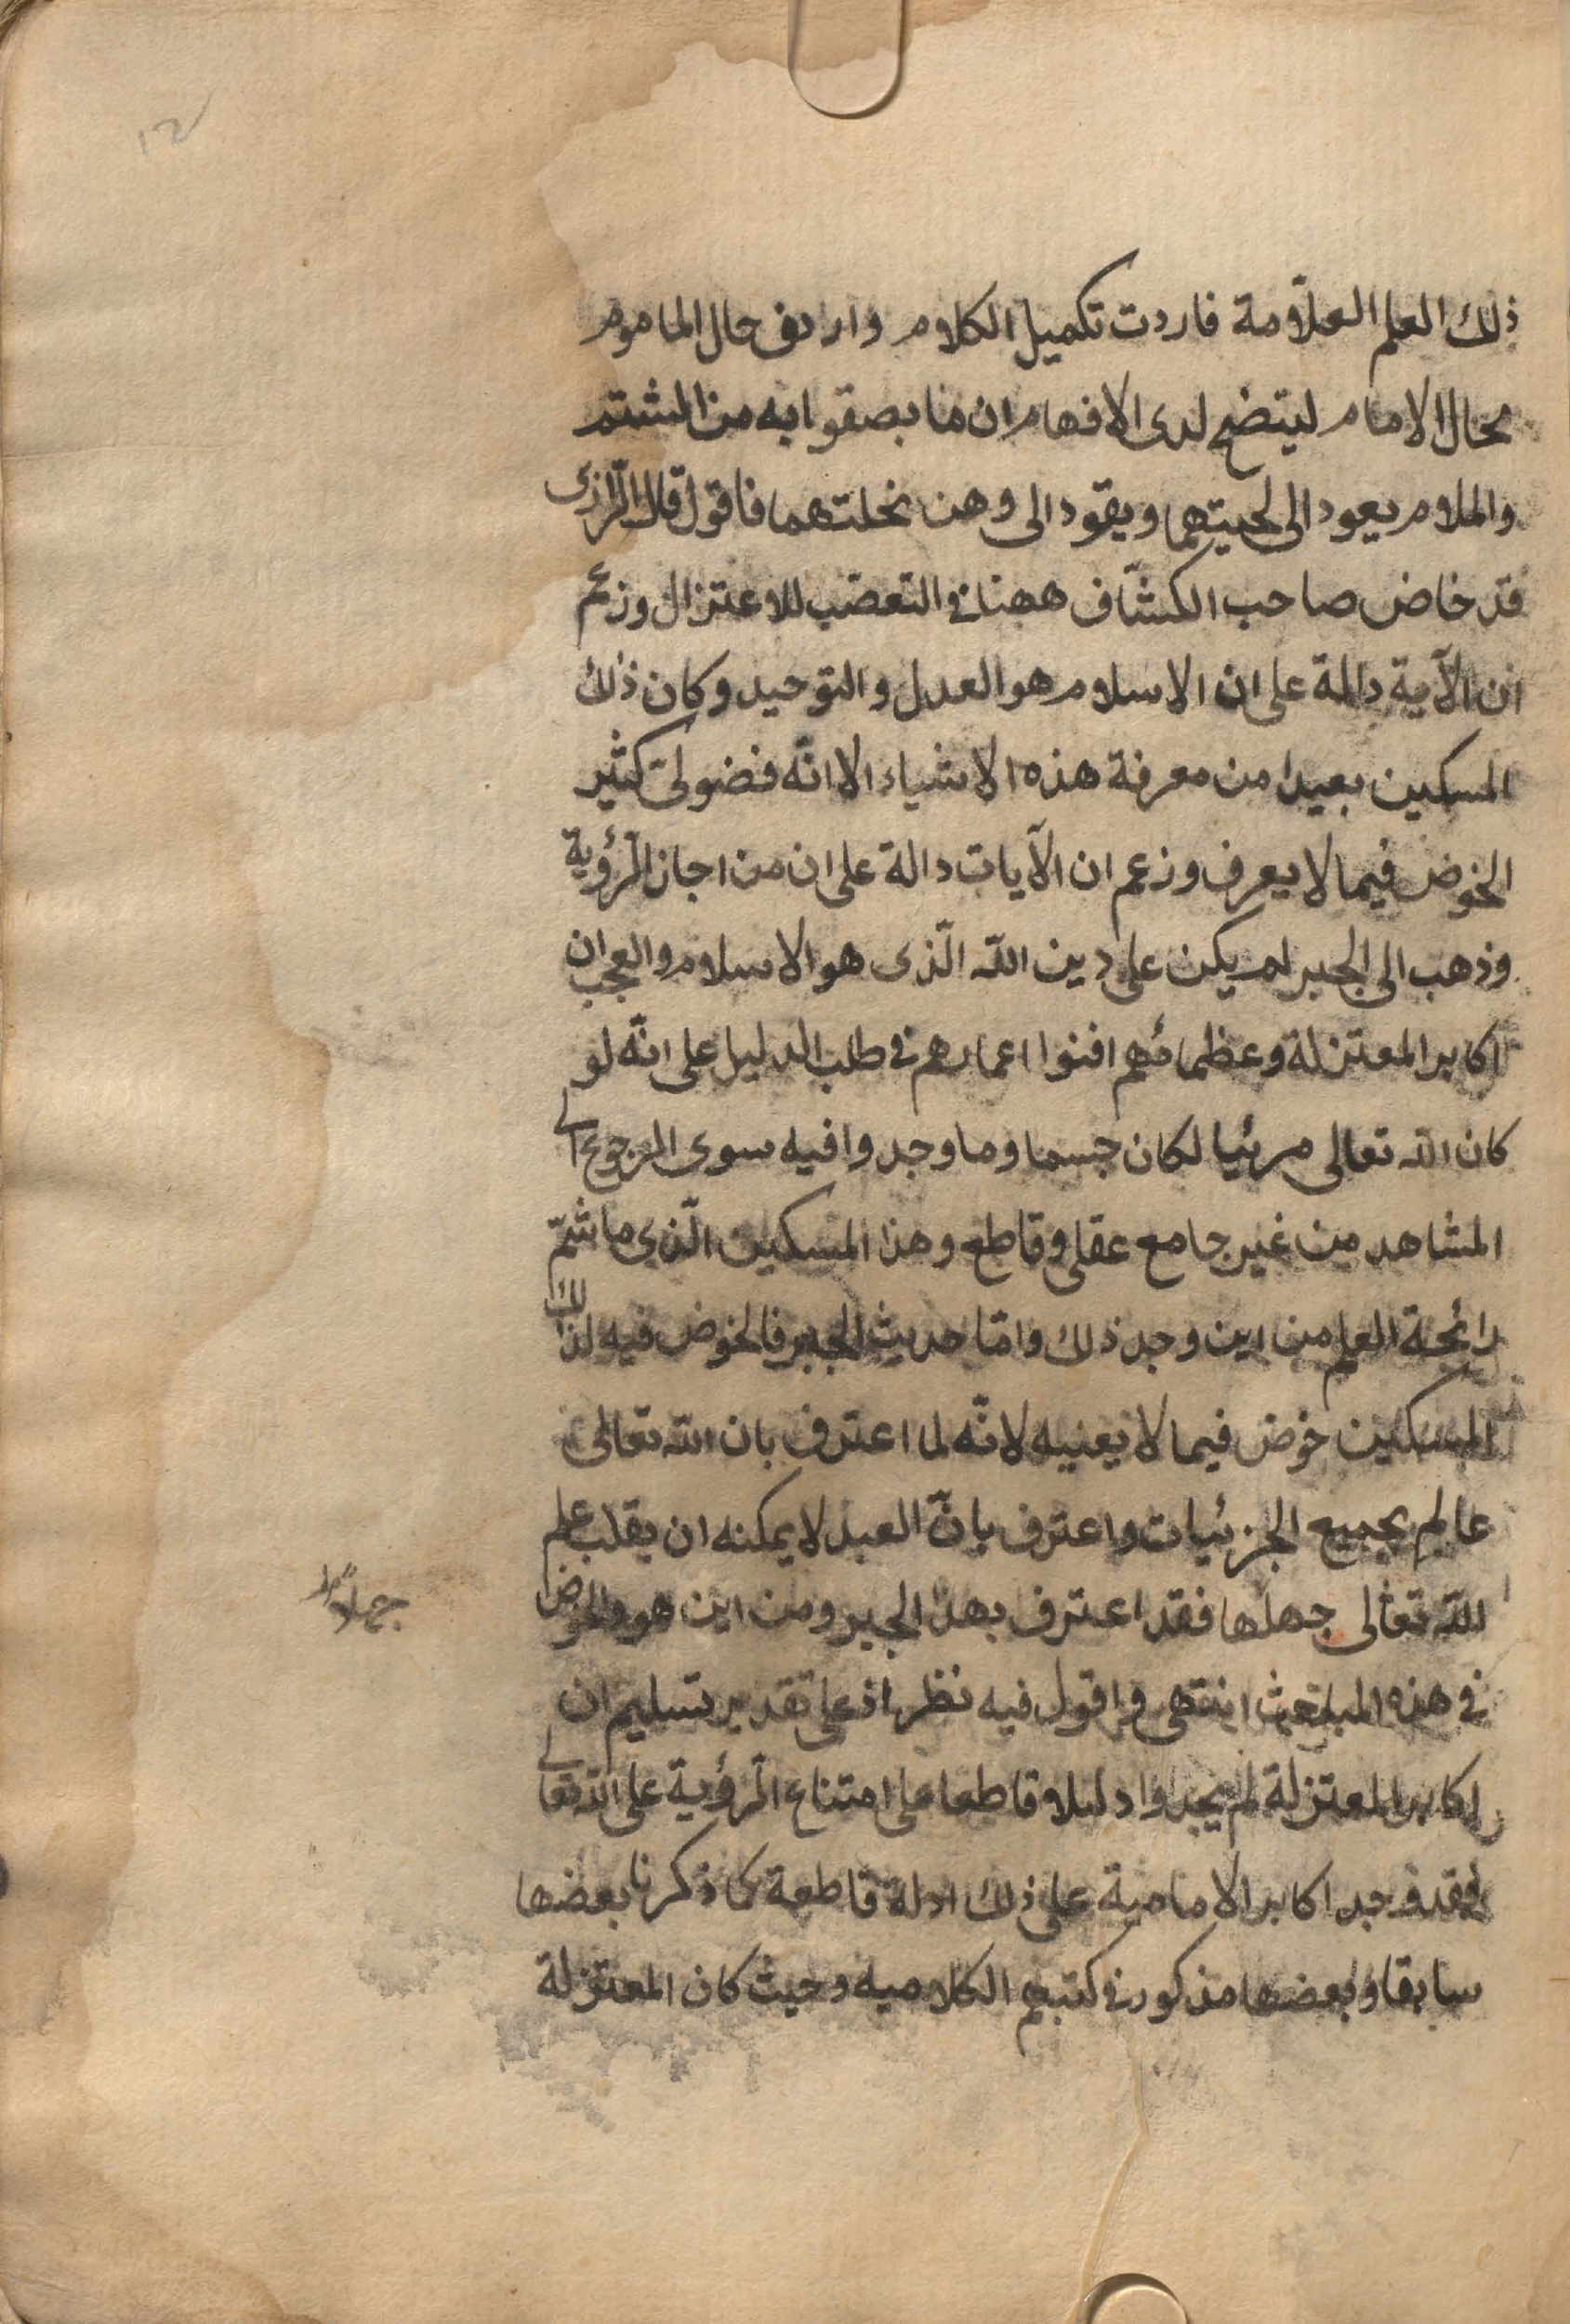 ١٢
ذلك العلم العلّامة فاردت تكميل الكلام واردف حال الماموم
بحال الامام ليتضح لدى الافهام ان ما بصقوا به من الشتم
والملام يعود الى لحيتهما ويقود الى وهن نحلتهما فاقول قال الرّازى
قد خاض صاحب الكشّاف ههنا فى التعصّب للاعتزال وزعم
ان الآية دالة على ان الاسلام هو العدل والتوحيد وكان ذلك
المسكين بعيدا من معرفة هذه الاشياء الا انّه فضولىّ كثير
الخوض فيما لا يعرف وزعم ان الآيات دالة على ان من اجاز الرّؤية
وذهب الى الجبر لم يكن على دين اللّه الّذى هو الاسلام والعجب ان
اكابر المعتزلة وعظمائهم افنوا اعمارهم فى طلب الدليل على انّه لو
كان اللّه تعالى مرئيا لكان جسما وما وجدوا فيه سوى الرجوع الى
المشاهد من غير جامع عقلى وقاطع وهذا المسكين الّذى ما شمّ
رائحة العلم من اين وجد ذلك وامّا حديث الجبر فالخوض فيه لذلك
المسكين خوض فيما لا يعنيه لانّه لما اعترف بان اللّه تعالى
عالم بجميع الجزئيات واعترف بانّ العبد لا يمكنه ان يقلب علم
اللّه تعالى جهلها فقد اعترف بهذا الجبر ومن اين هو والخوض
جهلاً
فى هذه المباحث انتهى واقول فيه نظر اذ على تقدير تسليم ان
اكابر المعتزلة لم يجدوا دليلا قاطعا على امتناع الرّؤية على اللّه تعالى
فقد وجد اكابر الامامية على ذلك ادلة قاطعة كما ذكرنا بعضها
سابقا وبعضها مذكور فى كتبهم الكلاميه وحيث كان المعتزلة